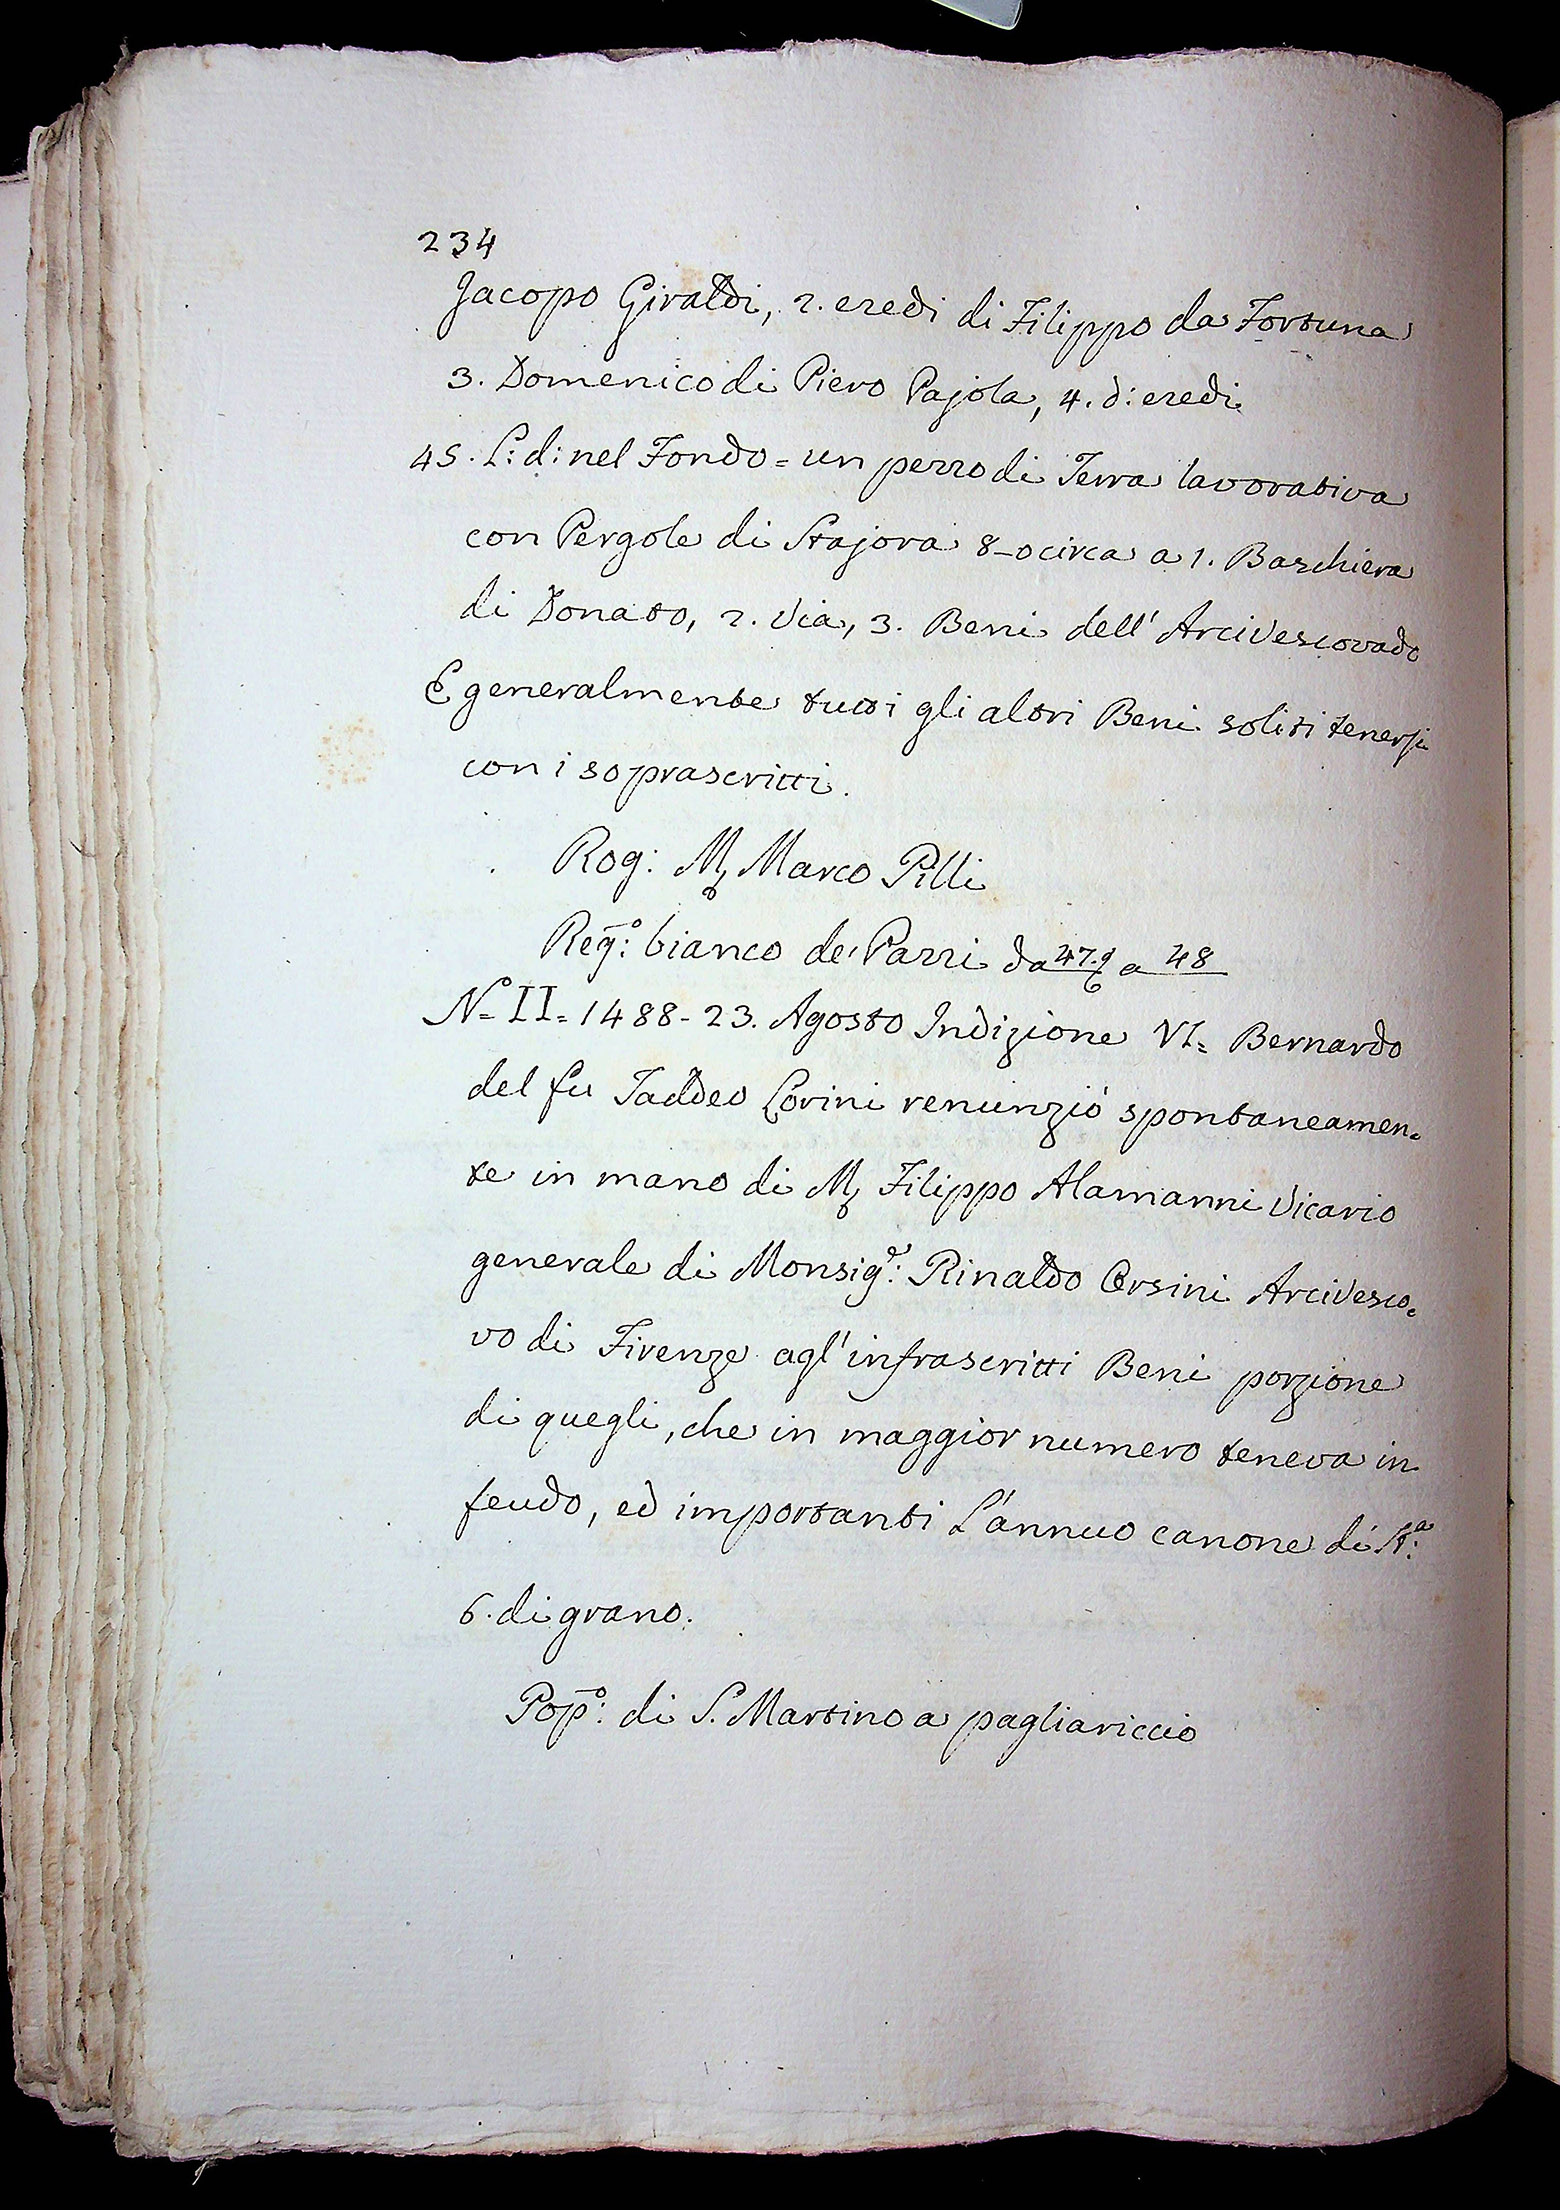 234
Jacopo Giraldi, 2. eredi di Filippo da Fortuna
3. Domenico di Piero Pajola, 4. d: eredi
45. L: d: nel Fondo = un pezzo di Terra lavorativa
con Pergole di Stajora 8_o circa a 1. Baschiera
di Donato, 2. Via, 3. Beni dell' Arcivescovado
E generalmente tutti gli altri Beni soliti tenersi
con i soprascritti.
Rog: Mʳ Marco Pilli
Reg̅º: bianco de' Pazzi da 47.t a 48
N= II= 1488 - 23. Agosto Indizione VI= Bernardo
del fu Taddeo Lorini renunziò spontaneamen=
te in mano di Mʳ Filippo Alamanni Vicario
generale di Monsigʳ: Rinaldo Orsini Arcivesco=
vo di Firenze agl' infrascritti Beni porzione
di quegli, che in maggior numero teneva in
feudo, ed importanti L'annuo canone di Stª:
6. di grano.
Pop̅º: di S. Martino a pagliariccio